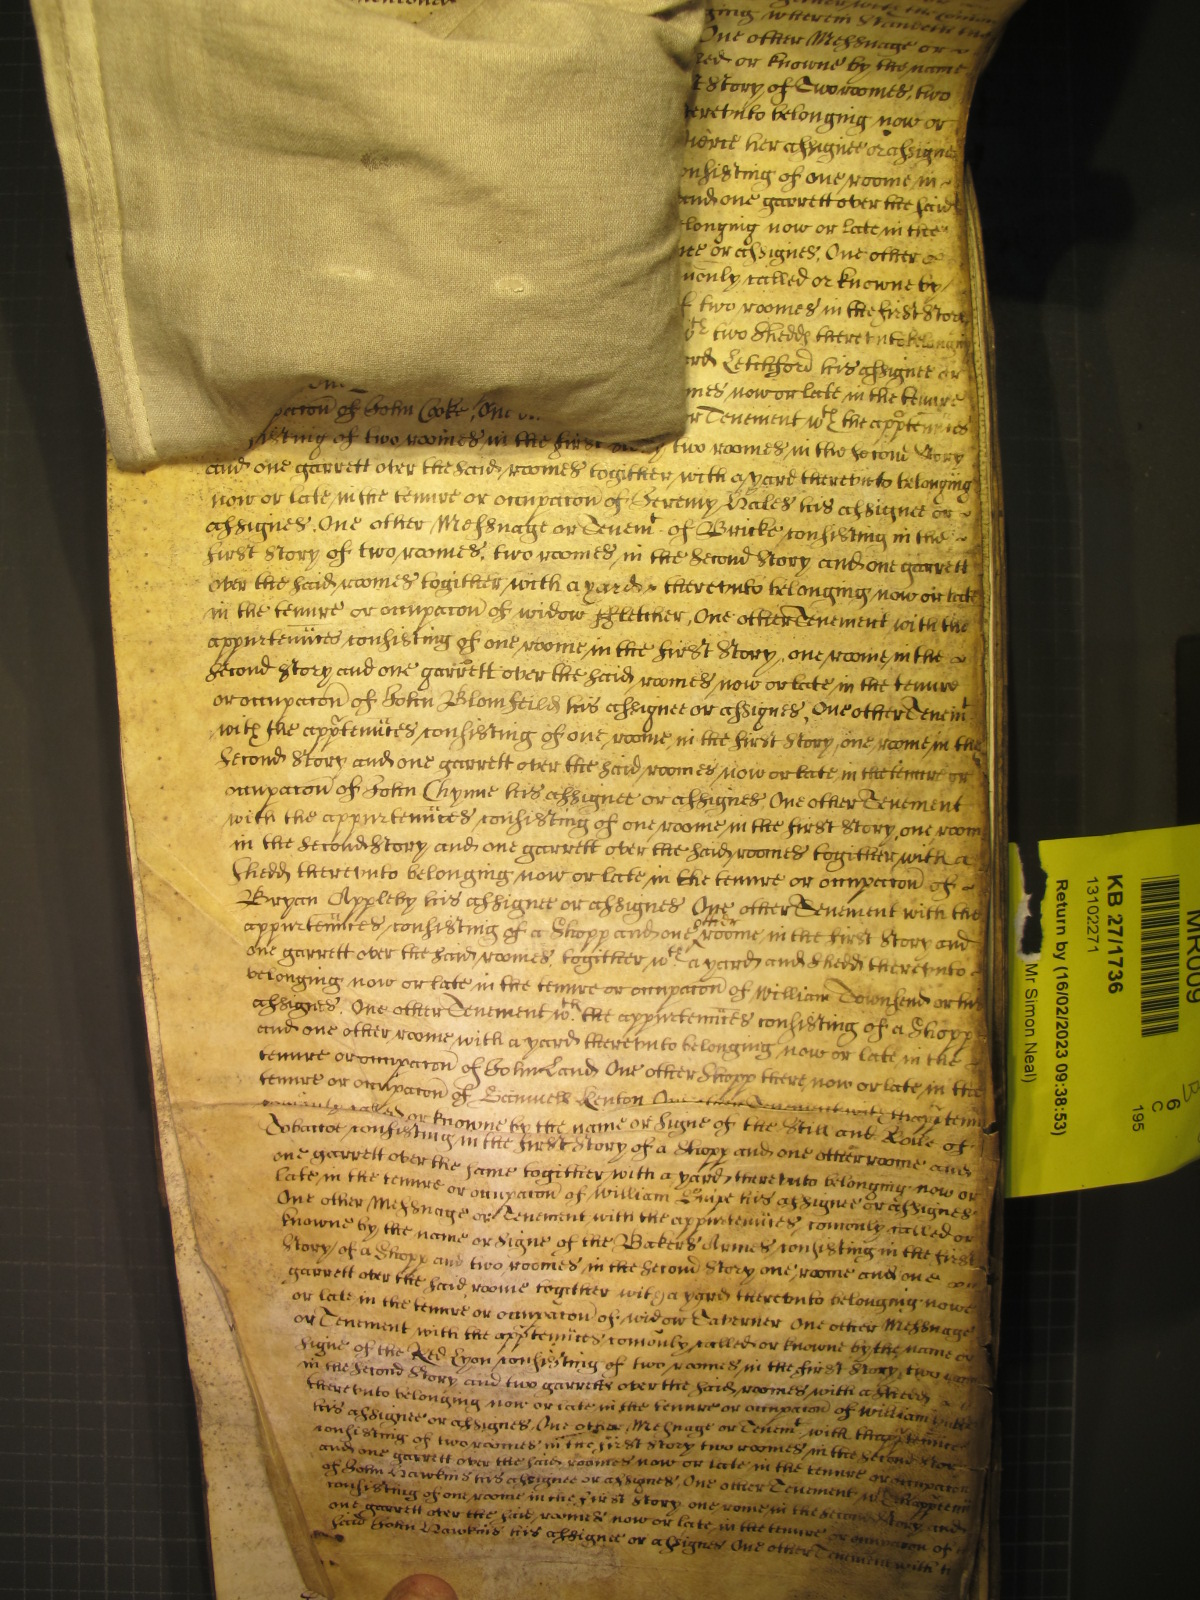 ging wherein
One other Messuage or
led or knowne by the name
t Story of Two roomes, two
therevnto belonging now or
her assignee or assignes
onsisting of one roome in
and one garrett over the said
elonging now or late in the
nee or assignes, One other
monly called or knowne by
f two roomes in the first Story
wth two Shedds therevnto belonging
ard Letchford his assignee or
mes now or late in the tenure
pacon of John Cooke, One
r Tenement wth the appten̄ces
isting of two roomes in the first Story two roomes in the second Story
and one garrett over the said roomes togither with a yard therevnto belonging
now or late in the tenure or occupacon of Jeremy Hales his assignee or
assignes. One other Messuage or Tenemt of Bricke consisting in the
first Story of two roomes, two roomes in the Second Story and one garrett
over the said roomes togither with a yard therevnto belonging now or late
in the tenure or occupacon of widow ffletcher, One other Tenement with the
appurten̄ces consisting of one roome in the first Story, one roome in the
Second Story and one garrett over the said roomes now or late in the tenure
or occupacon of John Blomfeild his assignee or assignes, One other Tenemt
with the appten̄ces consisting of one roome in the first Story, one roome in the
Second Story and one garrett over the said roomes now or late in the tenure or
occupacon of John Chynne his assignee or assignes One other Tenement
with the appurten̄ces consisting of one roome in the first Story, one room
in the Second Story and one garrett over the said roomes togither with a
Shedd therevnto belonging now or late in the tenure or occupacon of
Bryan Appleby his assignee or assignes One other Tenement with the
appurten̄ces consisting of a Shopp and one other roome in the first Story and
one garrett over the said roomes, togither wth a yard and Shedd therevnto
belonging now or late in the tenure or occupacon of William Townsend or his
assignes. One other Tenement wth the appurten̄ces consisting of a Shopp
and one other roome with a yard therevnto belonging now or late in the
tenure or occupacon of John Land One other Shopp there now or late in the
tenure or occupacon of Samuell Kenton One other Tenement with thapp̄ten
comonly called or knowne by the name or Signe of the Still and Rolle of
Tobacco consisting in the first Story of a Shopp and one other roome and
one garrett over the same togither with a yard therevnto belonging now or
late in the tenure or occupacon of William his assignee or assignes
One other Messuage or Tenement with the appurten̄ces comonly called or
knowne by the name or Signe of the Bakers Armes consisting in the first
Story of a Shopp and two roomes in the Second Story one roome and one
garrett over the said roome togither with a yard therevnto belonging nowe
or late in the tenure or occupacon of widow Taverner One other Messuage
or Tenement with the appten̄ces comonly called or knowne by the name or
Signe of the Red Lyon consisting of two roomes in the first Story, two
in the Second Story and two garretts over the said roomes with a Shedd
therevnto belonging now or late in the tenure or occupacon of William
his assignee or assignes. One other Messuage or Tenemt with thappten̄ces
consisting of two roomes in the first Story two roomes in the Second Stor
and one garrett over the said roomes now or late in the tenure or occupacon
of John Hawkins his assignee or assignes. One other Tenement wth thappten
consisting of one roome in the First Story one rome in the Second Story and
one garrett over the said roomes now or late in the tenure or occupacon of
said John Hawkins his assignee or assignes One other Tenement with
KB 27/1736
13102271
Return by (16/02/2023 09:38:53)
Mr Simon Neal)
6
C
195